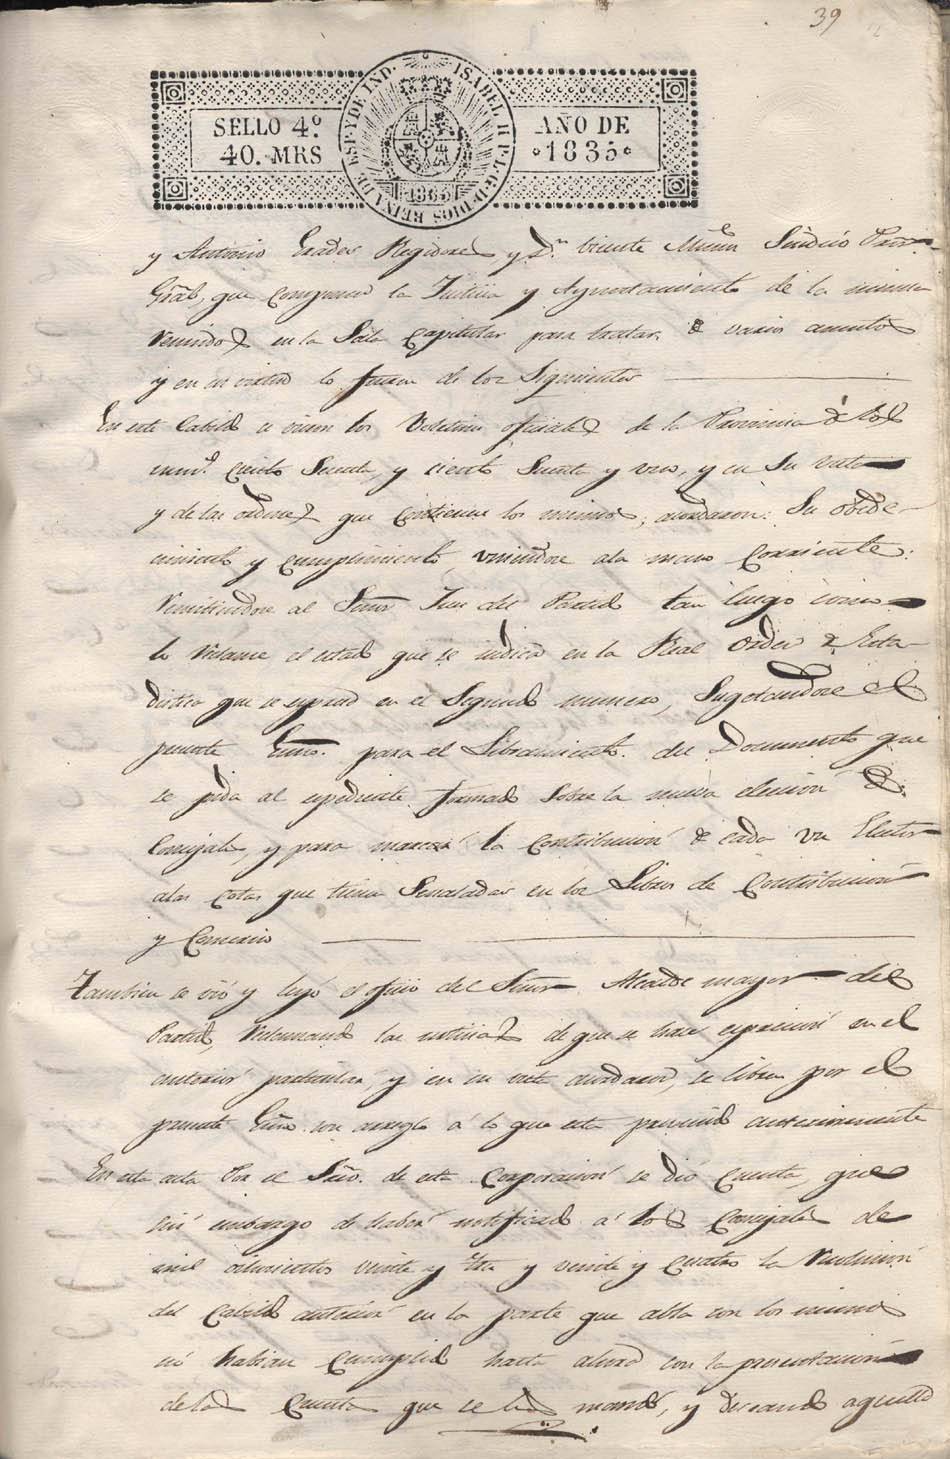 39
SELLO 4º
40. MRS
ISABEL II P. L. G. D. DIOS REINA DE ESP. Y DE IND.
1835
AÑO DE
1835
y Antonio Regidores y Dn. Vicente Sindico Procr.
Gral, que componen la Justicia y Ayuntamiento de la misma
Reunidos en la Sala Capitular para tratar de varios asuntos
y en su virtud lo fueron de los Siguientes
En este Cabildo se vieron los Boletines oficiales de la Provincia de los
nums. ciento Sesenta, y ciento Sesenta y uno, y en su vista
y de las ordenes que contienen los mismos, acordaron: Su obede-
cimiento y cumplimiento, uniendose a la mano Corriente:
Remitiendose al Señor Juez del Partido tan luego como
lo reclame el estado que se indica en la Real Orden de Esta-
distica que se espresa en el Segundo numero, Sugetandose el
presente Esno. para el Libramiento del Documento que
se pida al espediente formado sobre la nueva eleccion de
Concejales, y para marcar la contribucion de cada un Elector
a las cotas que tiene Señaladas en los Libros de Contribucion
y Comercio
Tambien se vió y leyó el oficio del Señor Alcalde mayor del
Partido, Reclamando las noticias de que se hace espresion en el
anterior particular, y en su vista acordaron, se libre por el
presente Esno. con arreglo á lo que esta prevenido anteriormente
En esta acta Por el Srio. de esta Corporacion se dió cuenta, que
sin embargo de haber notificado á los Concejales de
mil ochocientos veinte y tres y veinte y cuatro la
del Cabildo anterior en la parte que abla con los mismos
nó habian cumplido hasta ahora con la presentacion
de las Cuentas que se les mandó, y deseando aquello